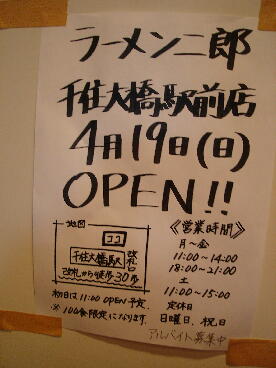 ラーメン二郎
千住大橋駅前店
4月19日(日)
OPEN!!
地図
ココ
千住大橋駅
改札口
改札から徒歩30歩
初日は11:00 OPEN予定.
※100食限定になります.
《営業時間》
月～金
11:00～14:00
18:00～21:00
土
11:00～15:00
定休日
日曜日、祝日
アルバイト募集中